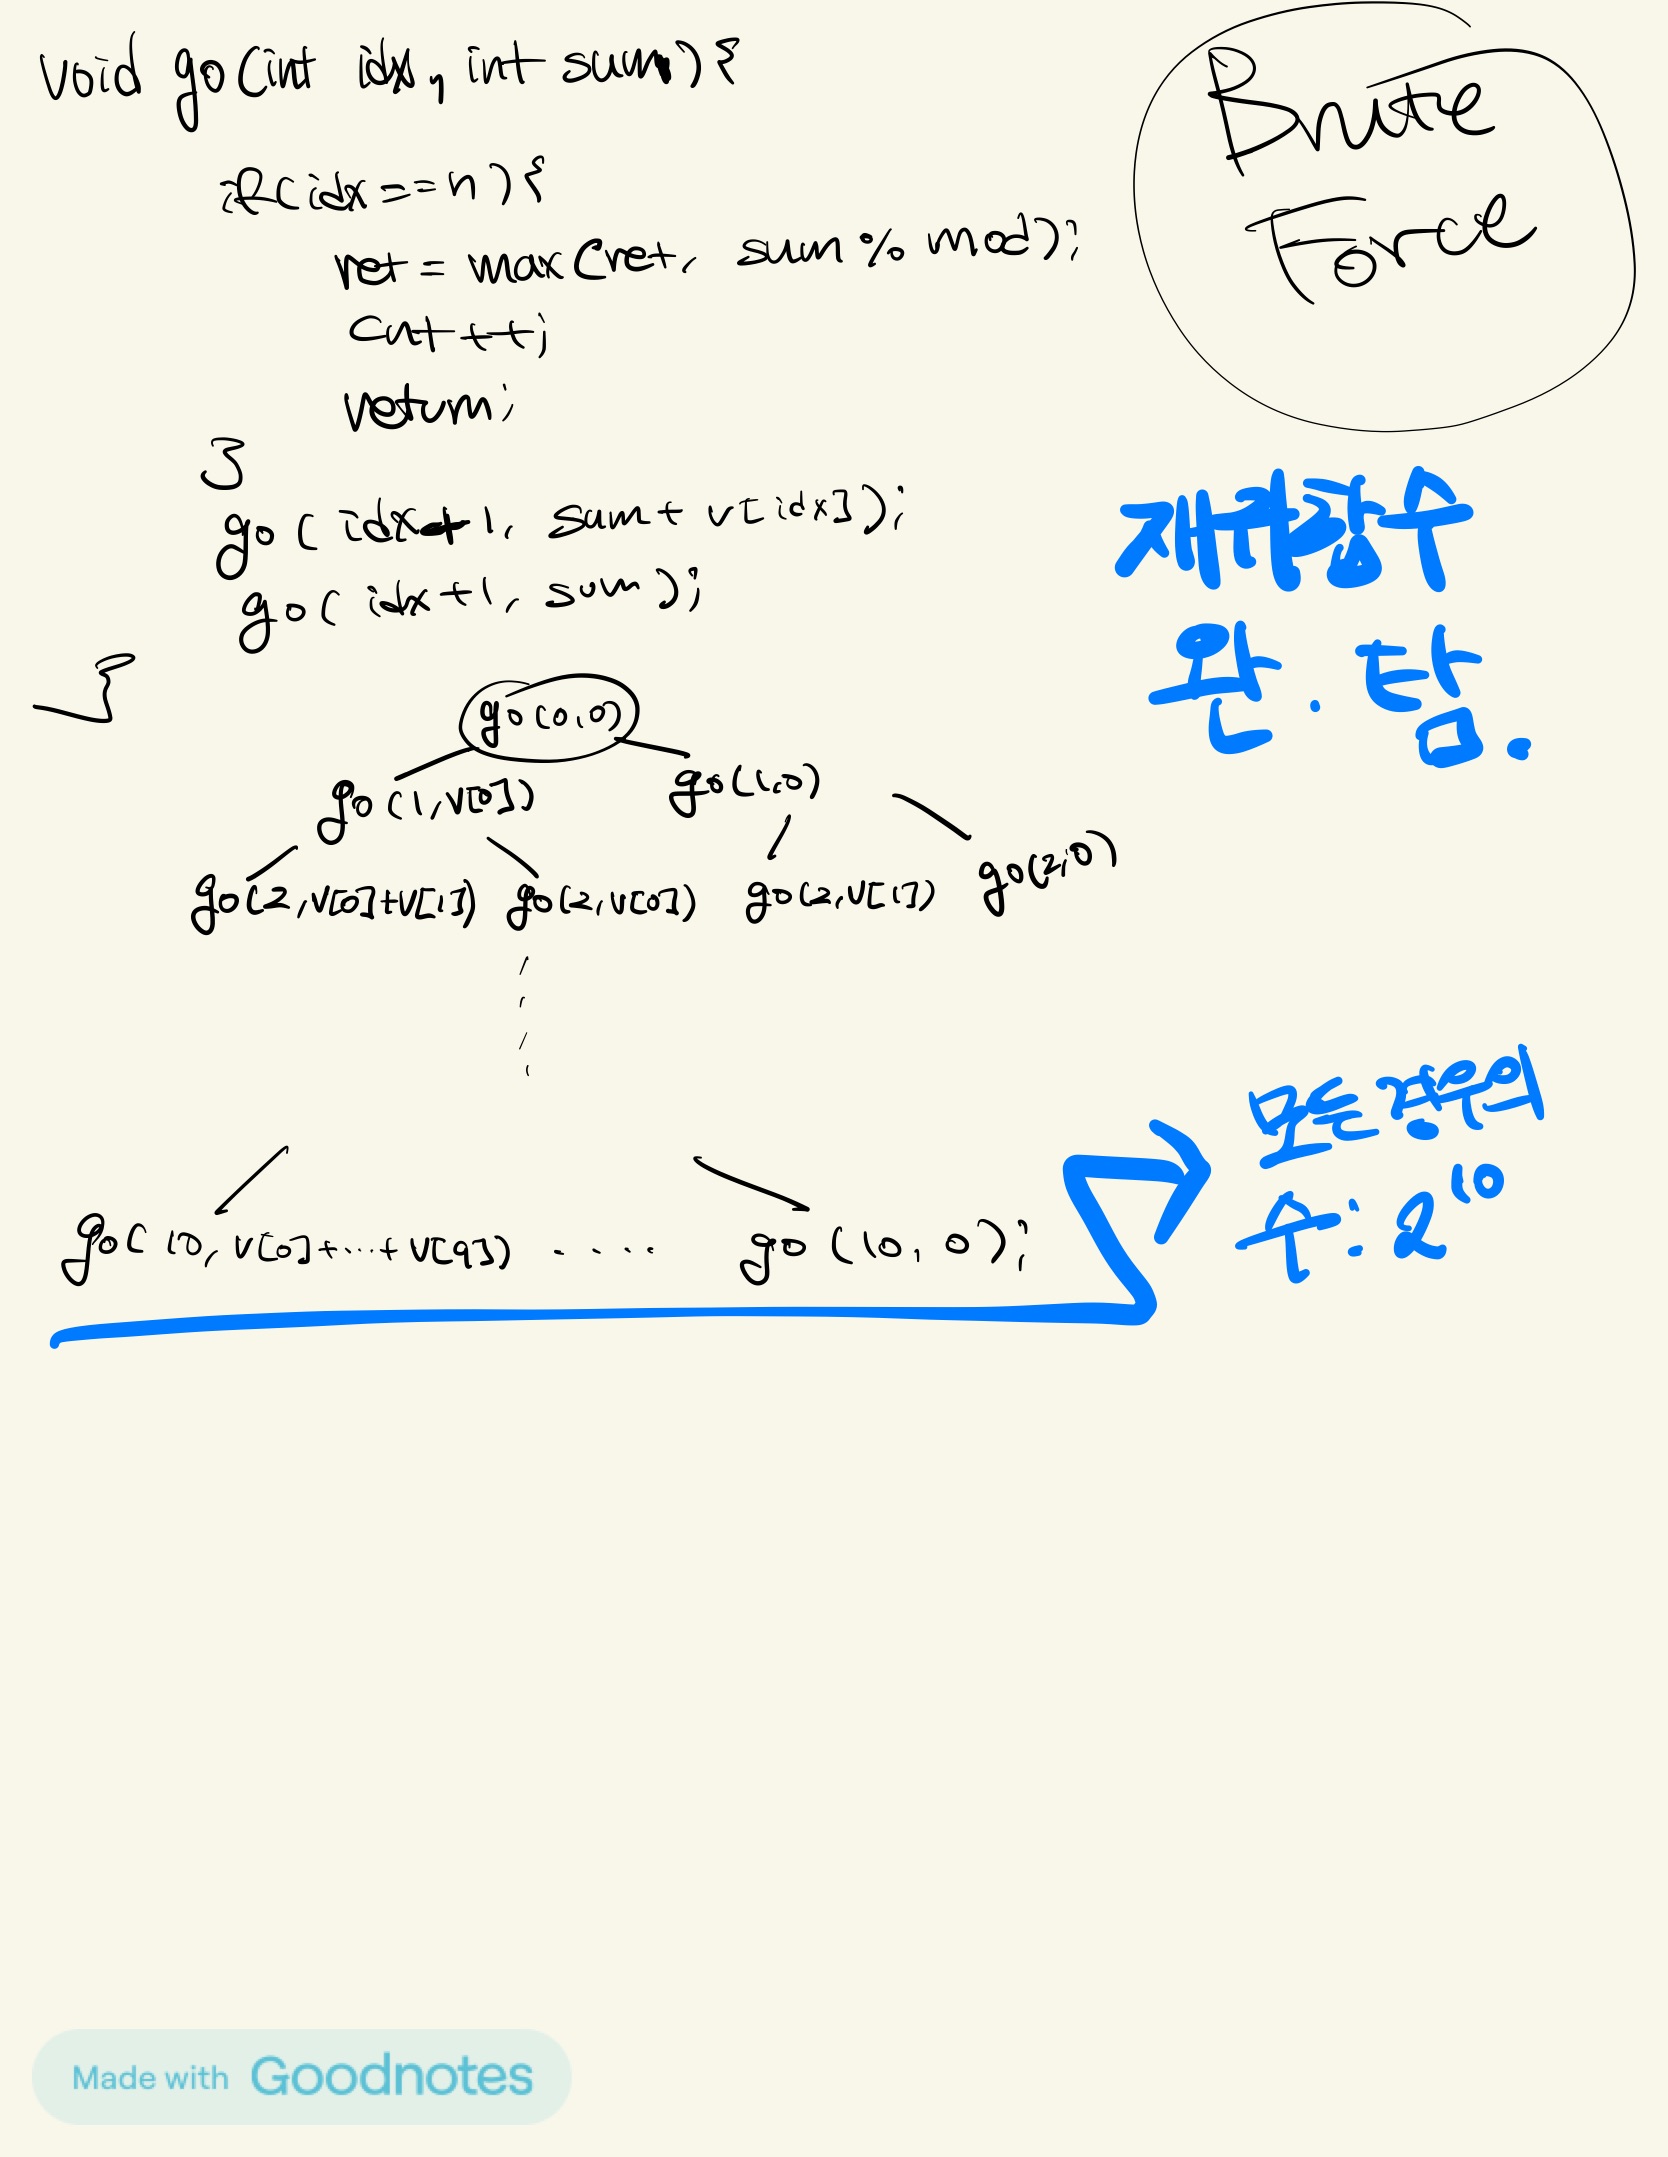 void go(int idx, int sum){
if(idx==n){
ret = max(ret, sum % mod);
cnt++;
return;
}
go(idx+1, sum+v[idx]);
go(idx+1, sum);
}
Brute
Force
재귀함수
완.탐.
go(0,0)
go(1,v[0]) go(1,0)
go(2,v[0]+v[1]) go(2,v[0]) go(2,v[1]) go(2,0)
go(10,v[0]+...+v[9]) .... go(10,0);
모든 경우의
수: 2^10
Made with Goodnotes